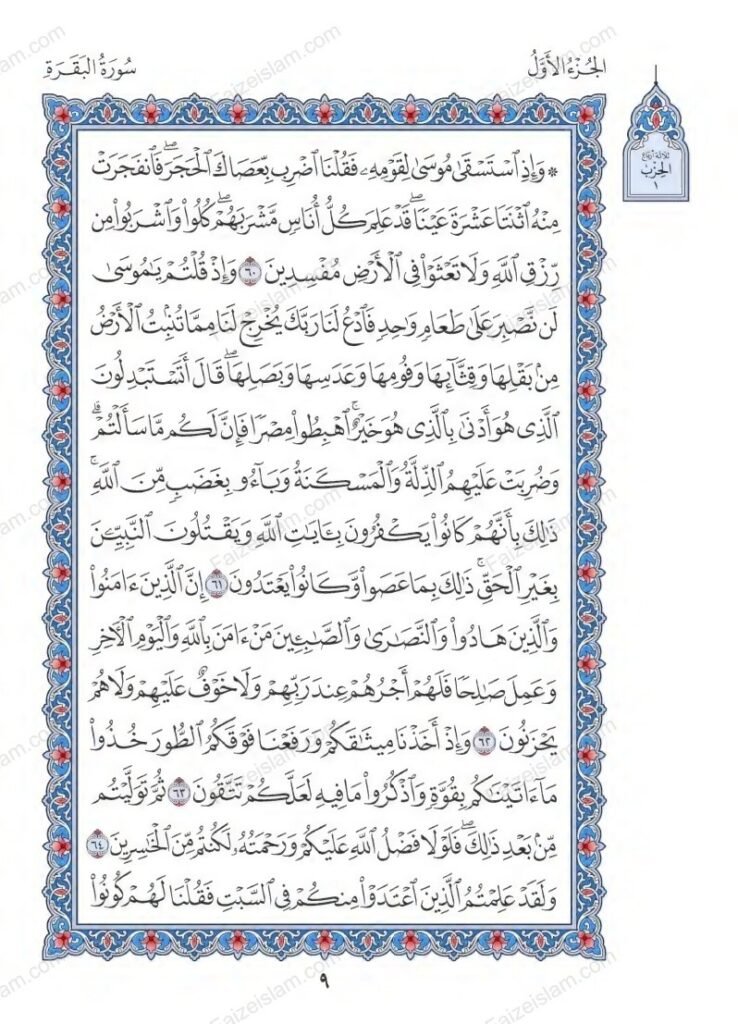 الجُزْءُ الأَوَّلُ
سُورَةُ البَقَرَةِ
ثلاثة أرباع
الحِزْب
١
۞ وَإِذِ ٱسۡتَسۡقَىٰ مُوسَىٰ لِقَوۡمِهِۦ فَقُلۡنَا ٱضۡرِب بِّعَصَاكَ ٱلۡحَجَرَۖ فَٱنفَجَرَتۡ
مِنۡهُ ٱثۡنَتَا عَشۡرَةَ عَيۡنٗاۖ قَدۡ عَلِمَ كُلُّ أُنَاسٖ مَّشۡرَبَهُمۡۖ كُلُواْ وَٱشۡرَبُواْ مِن
رِّزۡقِ ٱللَّهِ وَلَا تَعۡثَوۡاْ فِي ٱلۡأَرۡضِ مُفۡسِدِينَ ٦٠ وَإِذۡ قُلۡتُمۡ يَٰمُوسَىٰ
لَن نَّصۡبِرَ عَلَىٰ طَعَامٖ وَٰحِدٖ فَٱدۡعُ لَنَا رَبَّكَ يُخۡرِجۡ لَنَا مِمَّا تُنۢبِتُ ٱلۡأَرۡضُ
مِنۢ بَقۡلِهَا وَقِثَّآئِهَا وَفُومِهَا وَعَدَسِهَا وَبَصَلِهَاۖ قَالَ أَتَسۡتَبۡدِلُونَ
ٱلَّذِي هُوَ أَدۡنَىٰ بِٱلَّذِي هُوَ خَيۡرٌۚ ٱهۡبِطُواْ مِصۡرٗا فَإِنَّ لَكُم مَّا سَأَلۡتُمۡۗ
وَضُرِبَتۡ عَلَيۡهِمُ ٱلذِّلَّةُ وَٱلۡمَسۡكَنَةُ وَبَآءُو بِغَضَبٖ مِّنَ ٱللَّهِۚ
ذَٰلِكَ بِأَنَّهُمۡ كَانُواْ يَكۡفُرُونَ بِـَٔايَٰتِ ٱللَّهِ وَيَقۡتُلُونَ ٱلنَّبِيِّـۧنَ
بِغَيۡرِ ٱلۡحَقِّۚ ذَٰلِكَ بِمَا عَصَواْ وَّكَانُواْ يَعۡتَدُونَ ٦١ إِنَّ ٱلَّذِينَ ءَامَنُواْ
وَٱلَّذِينَ هَادُواْ وَٱلنَّصَٰرَىٰ وَٱلصَّٰبِـِٔينَ مَنۡ ءَامَنَ بِٱللَّهِ وَٱلۡيَوۡمِ ٱلۡأٓخِرِ
وَعَمِلَ صَٰلِحٗا فَلَهُمۡ أَجۡرُهُمۡ عِندَ رَبِّهِمۡ وَلَا خَوۡفٌ عَلَيۡهِمۡ وَلَا هُمۡ
يَحۡزَنُونَ ٦٢ وَإِذۡ أَخَذۡنَا مِيثَٰقَكُمۡ وَرَفَعۡنَا فَوۡقَكُمُ ٱلطُّورَ خُذُواْ
مَآ ءَاتَيۡنَٰكُم بِقُوَّةٖ وَٱذۡكُرُواْ مَا فِيهِ لَعَلَّكُمۡ تَتَّقُونَ ٦٣ ثُمَّ تَوَلَّيۡتُم
مِّنۢ بَعۡدِ ذَٰلِكَۖ فَلَوۡلَا فَضۡلُ ٱللَّهِ عَلَيۡكُمۡ وَرَحۡمَتُهُۥ لَكُنتُم مِّنَ ٱلۡخَٰسِرِينَ ٦٤
وَلَقَدۡ عَلِمۡتُمُ ٱلَّذِينَ ٱعۡتَدَوۡاْ مِنكُمۡ فِي ٱلسَّبۡتِ فَقُلۡنَا لَهُمۡ كُونُواْ
٩
Faizeislam.com